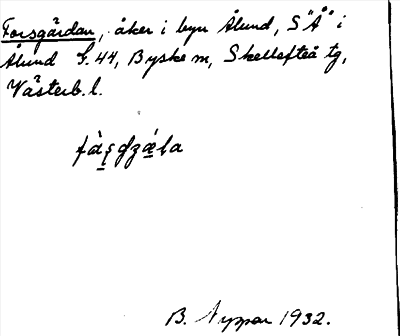 Forsgärdan, åker i byn Ålund, S"Å" i
Ålund S.44, Byske sn, Skellefteå tg,
Västerb. l.
B. Nyman 1932.